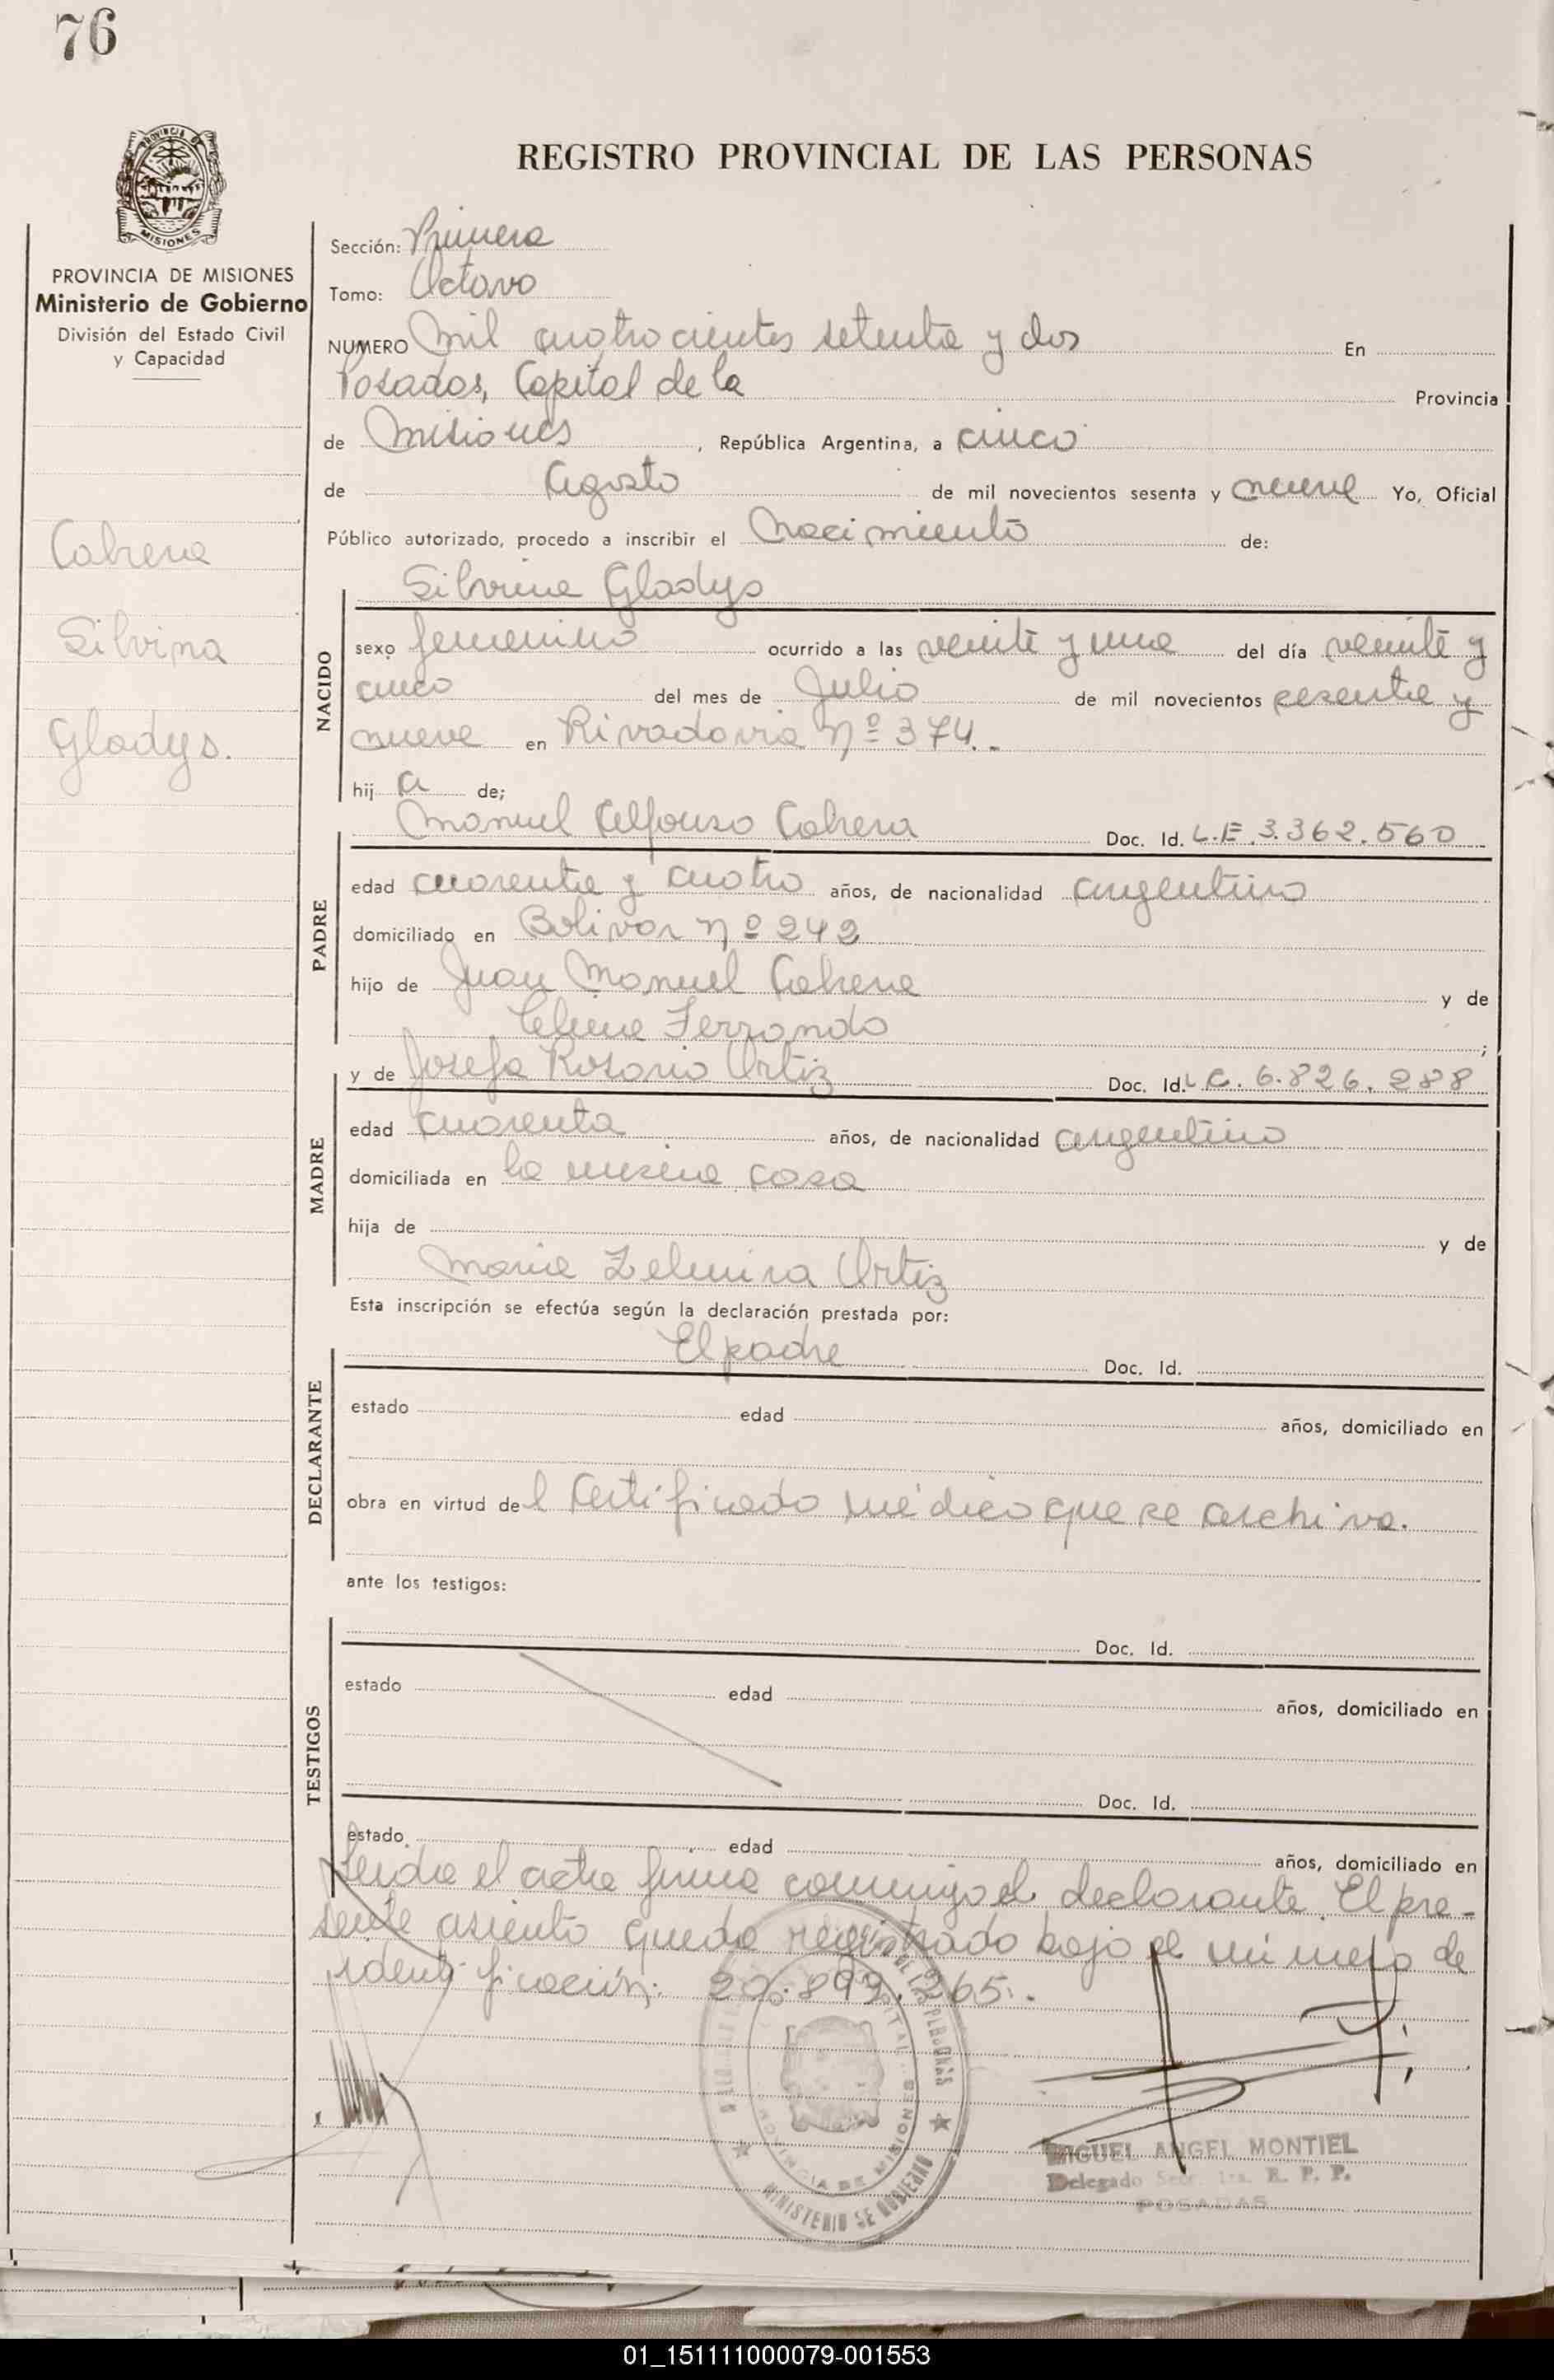 76
REGISTRO PROVINCIAL DE LAS PERSONAS
PROVINCIA DE MISIONES
Ministerio de Gobierno
División del Estado Civil
y Capacidad
Cabrera
Silvina
Gladys.
Sección: Primera
Tomo: Octavo
NUMERO Mil cuatrocientos setenta y dos En
Posadas, Capital de la Provincia
de Misiones, República Argentina, a cinco
de Agosto de mil novecientos sesenta y nueve Yo, Oficial
Público autorizado, procedo a inscribir el Nacimiento de:
NACIDO
Silvina Gladys
sexo femenino ocurrido a las veinte y una del día veinte y
cinco del mes de Julio de mil novecientos sesenta y
nueve en Rivadavia Nº 374.
hij a de;
PADRE
Manuel Alfonso Cabrera Doc. Id. L.E. 3.362.560
edad cuarenta y cuatro años, de nacionalidad argentino
domiciliado en Bolivar Nº 242
hijo de Juan Manuel Cabrera y de
Ferrando ;
MADRE
y de Josefa Rosario Ortiz Doc. Id. L.C. 6.826.288
edad cuarenta años, de nacionalidad argentina
domiciliada en la misma casa
hija de y de
Maria Zelmira Ortiz
Esta inscripción se efectúa según la declaración prestada por:
DECLARANTE
El padre Doc. Id.
estado edad años, domiciliado en
obra en virtud del Certificado médico que se archiva.
ante los testigos:
TESTIGOS
Doc. Id.
estado edad años, domiciliado en
Doc. Id.
estado edad años, domiciliado en
Leida el acta firma conmigo el declarante. El pre-
sente asiento queda registrado bajo el número de
identificación: 20.899.265.
PROVINCIA DE MISIONES
MINISTERIO DE GOBIERNO
MIGUEL ANGEL MONTIEL
Delegado Secc. 1ra. R. P. P.
POSADAS
01_151111000079-001553